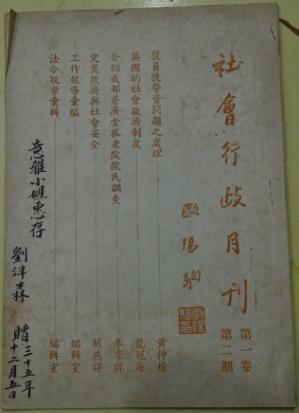 社會行政月刊
歐陽駒
第一卷
第二期
復員復勞資問題之處理
黃仲榆
英國的社會救濟制度
龍冠海
介紹成都普濟堂孤老院院民調查
李季謀
災荒救濟與社會安全
關燕詳
工作報導彙編
編輯室
法令規章彙輯
編輯室
惠存
劉津森
贈
三十五年
十二月五日